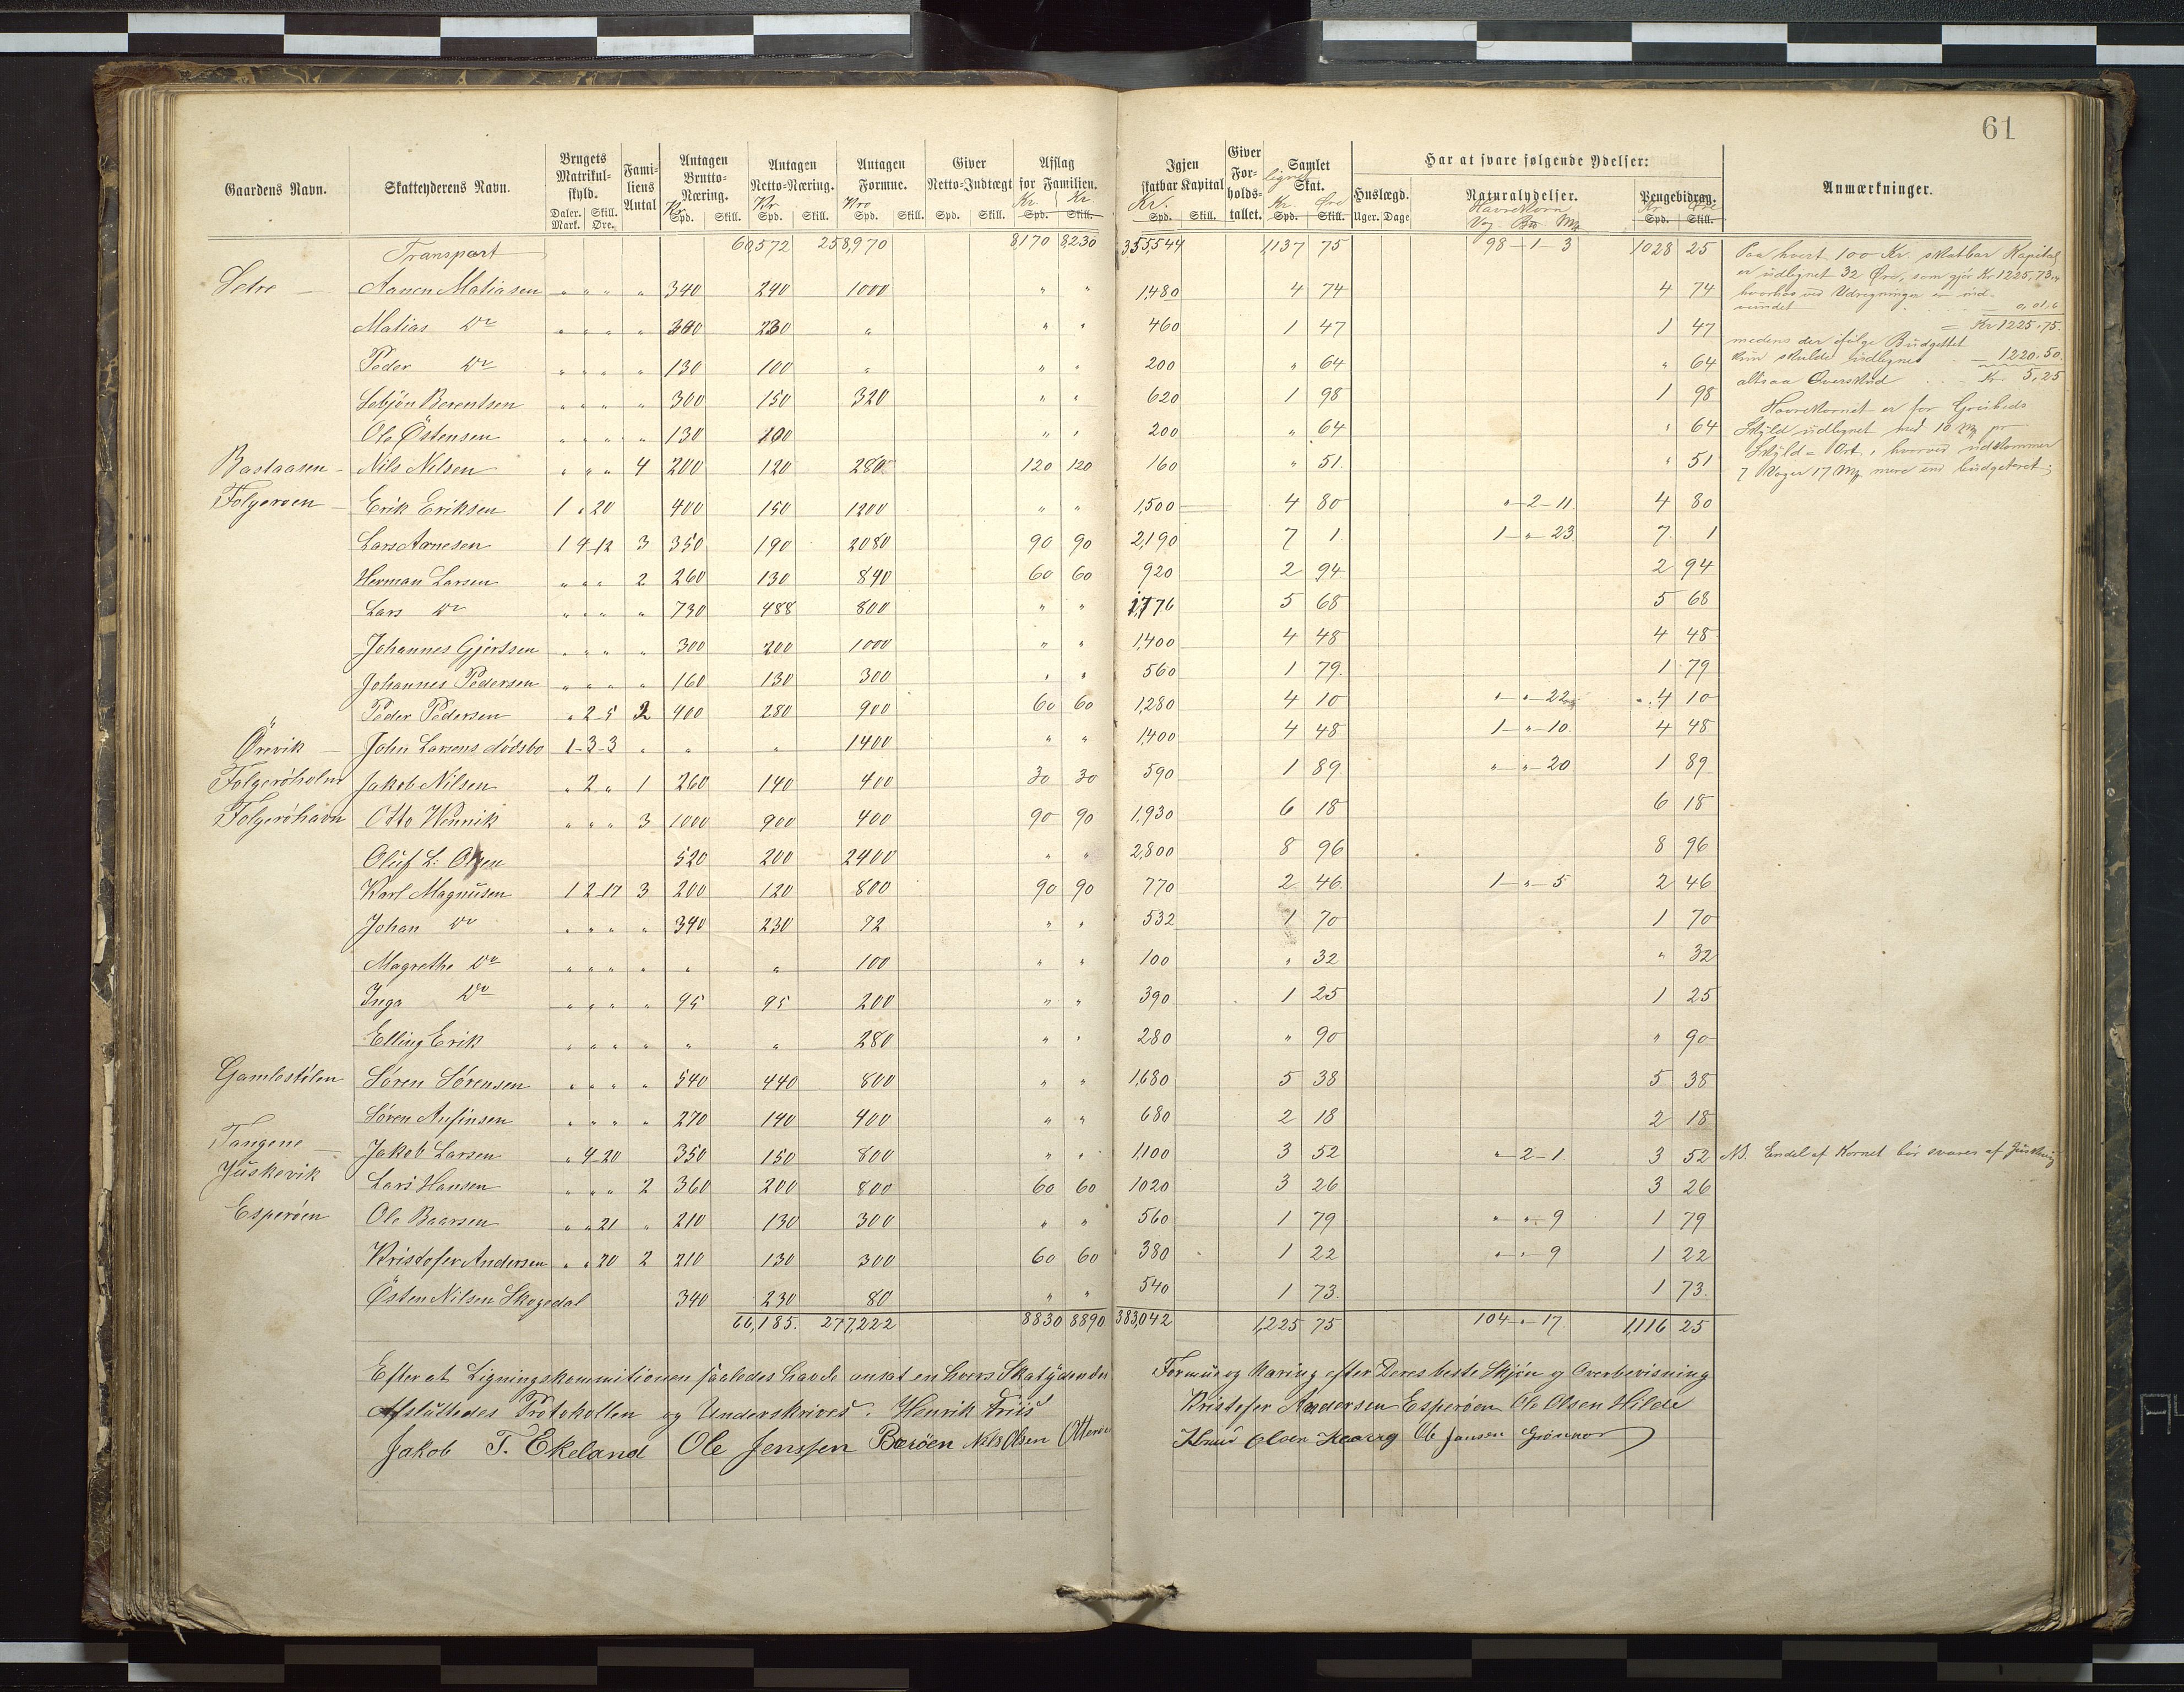 61
Gaardens Navn. Skatteyderens Navn. Brugets Matrikulskyld. Familiens Antal Antagen Brutto-Næring. Antagen Netto-Næring. Antagen Formue. Giver Netto-Indtægt Afslag for Familien. Igjen skatbar Kapital Giver Forholdstallet. Samlet Skat. Har at svare følgende Ydelser: Anmærkninger.
Daler. Skill. Kr Kr Kro Kr. Kr. Kr. lignet Kr. Øre Huslægd. Naturalydelser. Pengebidrag.
Mark. Øre. Spd. Skill. Spd. Skill. Spd. Skill. Spd. Skill. Spd. Skill. Spd. Skill. Spd. Skill. Uger. Dage Havrekorn Kr Øre Spd. Skill.
Transport 60,572 258,970 8,170 8,230 355,544 1,137 75 98-1-3 1028 25
Setre - Aanen Matiasen " " " " 340 240 1000 " " 1,480 4 74 4 74
Matias Do " " " " 300 230 " " " 460 1 47 1 47
Peder Do " " " " 130 100 " " " 200 " 64 " 64
Lebjön Berentsen " " " " 300 150 320 " " 620 1 98 1 98
Ole Östensen " " " " 130 100 " " 200 " 64 " 64
Bastaasen - Nils Nilsen " " " 4 200 120 280 120 120 160 " 51 " 51
Folgeroen - Erik Eriksen 1 " 20 400 150 1200 " " 1,500 4 80 "-2-11. 4 80
Lars Aanesen 1 4-12 3 350 190 2080 90 90 2,190 7 1 1-"-23. 7 1
Herman Larsen " " " 2 260 130 840 60 60 920 2 94 2 94
Lars Do " " " " 730 488 800 " " 1,776 5 68 5 68
Johannes Gjertsen " " " " 300 200 1000 " " 1,400 4 48 4 48
Johannes Pedersen " " " " 160 130 300 " " 560 1 79. 1 79
Peder Pedersen " 2-5 2 400 280 900 60 60 1,280 4 10 "-"-22 4 10
Örevik - John Larsens dödsbo 1-3-3 " " " 1400 " " 1,400 4 48 1-"-10. 4 48
Folgeröholm Jakob Nilsen " 2 " 1 260 140 400 30 30 590 1 89. "-"-20 1 89
Folgeröhavn Otto Wennik " " " 3 1000 900 400 90 90 1,930 6 18 6 18
Oluf L: Olsen 520 200 2400 " " 2,800 8 96 8 96
Karl Magnusen 1 2-17 3 200 120 800 90 90 770 2 46 1-"-5 2 46
Johan Do " " " " 340 230 72 " " 532 1 70 1 70
Magrethe Do " " " " " " 100 " " 100 " 32 " 32
Inga Do " " " " 95 95 200 " " 390 1 25 1 25
Elling Erik " " " " " " 280 " " 280 " 90 " 90
Gamlestölen Sören Sörensen " " " " 540 440 800 " " 1,680 5 38 5 38
Sören Anfinsen " " " " 270 140 400 " " 680 2 18 2 18
Tangene - Jakob Larsen " 4-20 350 150 800 " " 1,100 3 52 "-2-1. 3 52 NB. Endel af Kornet bör svares af Juskevig
Juskevik Lars Hansen " " " 2 360 200 800 60 60 1020 3 26 3 26
Esperöen Ole Baarsen " " 21 " 210 130 300 " " 560 1 79 "-"-9 1 79
Kristofer Andersen " " 20 2 210 130 300 60 60 380 1 22 "-"-9 1 22
Östen Nilsen Skogedal 340 230 80 " " 540 1 73. 1 73.
66,185. 277,222 8830 8890 383,042 1,225 75 104-"-17. 1,116 25
Paa hvert 100 Kr. skatbar Kapital
er udlignet 32 Øre, som gjör Kr. 1225,73,4
hvorhos ved Udregningen er ind-
vundet 0,01,6
= Kr 1225.75.
medens der ifölge Budgettet
kun skulde udlignes - 1220.50.
altsaa Overskud Kr 5,25
Havrekornet er for Greibeds
Skyld udlignet med 18 Mk pr
Skyld-Ort, hvorved udkommer
7 Voger 17 Mk mere end budgeteret;
Efterat Ligningskommitionen saaledes havde ansat en hvers Skatydendes Formue og Næring efter Deres beste Skjön og Overbevisning
Afsluttedes Protokollen og Underskrives. Henrik Friis Kristofer Andersen Esperöen Ole Olsen Hilde
Jakob T. Ekeland Ole Jenssen Baröen Nils Olsen Otteröe Knud Olsen Ole Jansen Grönnor